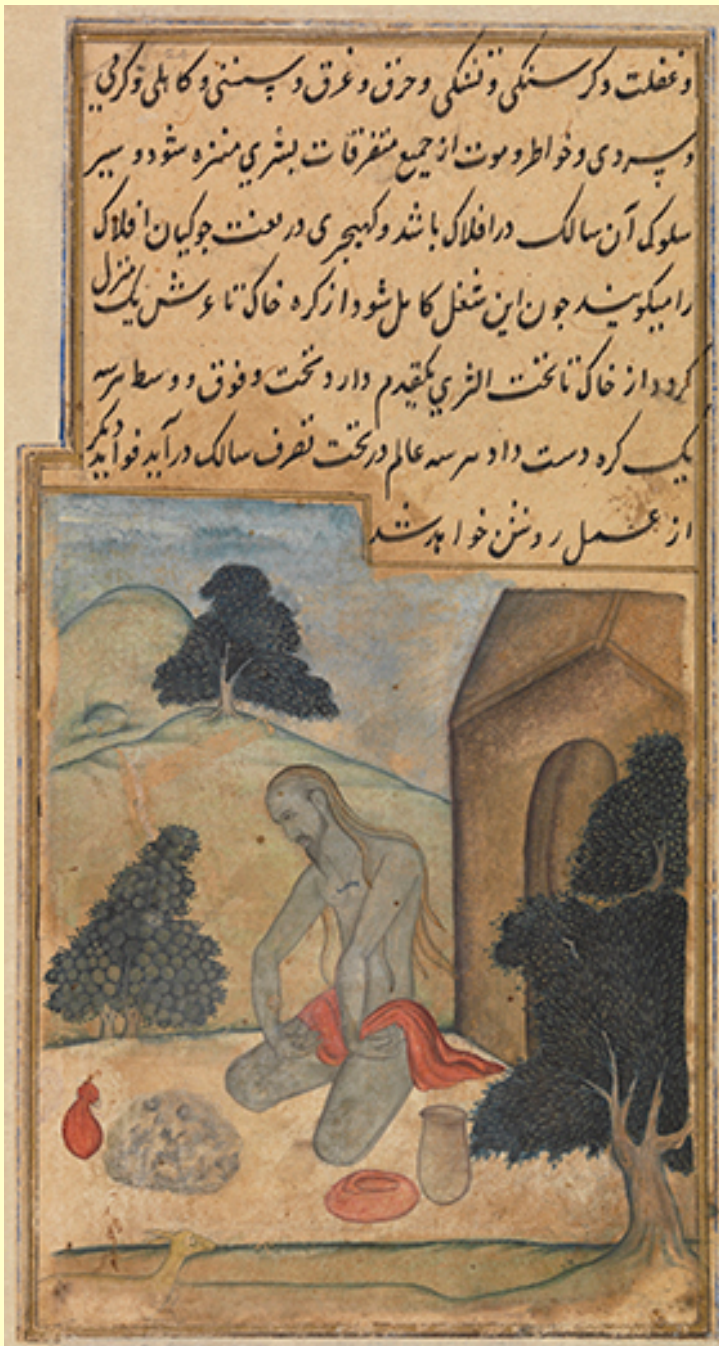 و غفلت و کرسنکی و تشنکی و حرق و غرق و سستی و کاهلی و کرمی
و سردی و خواطر و موت از جمیع متفرقات بشری منزه شود و سیر
سلوک آن سالک در افلاک باشد و کهیچری در لغت جوکیان افلاک
را میکویند جون این شغل کامل شود از کره خاک تا عرش یک منزل
کردد از خاک تا تحت الثری یکقدم دارد تحت و فوق و وسط هر سه
یک کره دست داد هر سه عالم در تحت تصرف سالک در آید فواید دیکر
از عمل روشن خواهد شد